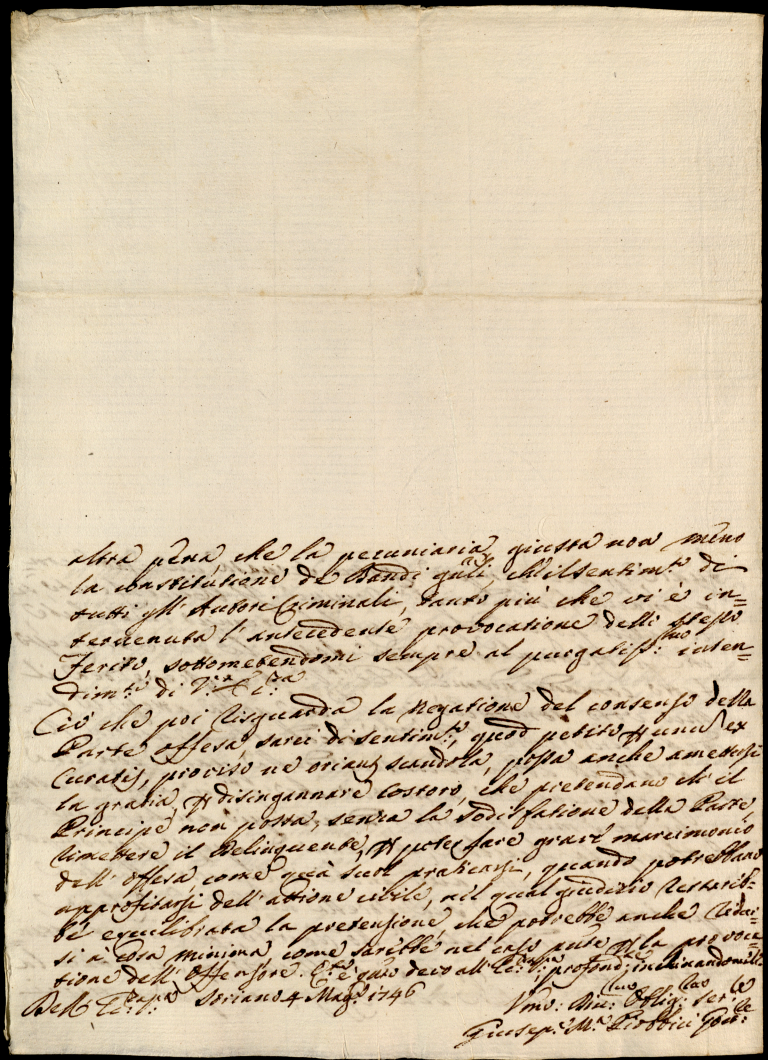 altra pena che la pecuniaria giusta non meno
la constitutione de Bandi gñali, ch'il sentim.to di
tutti gli Autori Criminali, tanto più che vi è in=
tervenuta l'antecedente provocatione dello stesso
Ferito, sottomettendomi sempre al purgatiss.mo inten=
dim.to di
Ciò che poi risguarda la Negatione del consenso della
Parte offesa, sarei di sentim.to, quod petito ex
Curatis, proviso ne oriantur scandola, possa anche ammettersi
la gratia, disingannare costoro, che pretendano ch'il
Principe non possa, senza la sodisfatione della Parte
rimettere il Delinquente, poter fare gravi marcimonio
dell'offesa, come quà suol praticarsi, quando potrebbano
approfitarsi dell'attione civile, nel qual giuditio resterib=
be equilibrata la pretensione, che potrebbe anche ridur=
si à cosa minima, come sarebbe nel caso pñte la provoca=
tione dell'Offensore. E è q.to devo all' profond.e inchinandomi
Dell' Soriano 4 Mag.o 1746
Vmo: Oblig: Ser:e
Giusep.e M.a Piobbici Gov:re